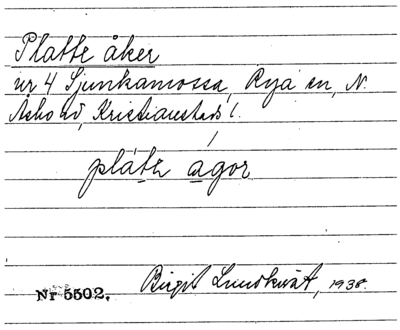 Platte åker
nr 4 Sjunkamossa, Rya sn, N.
Åsbo hd, Kristianstads l.
pláte ágor
Nr 5502.
Birgit Lundkvist, 1938.